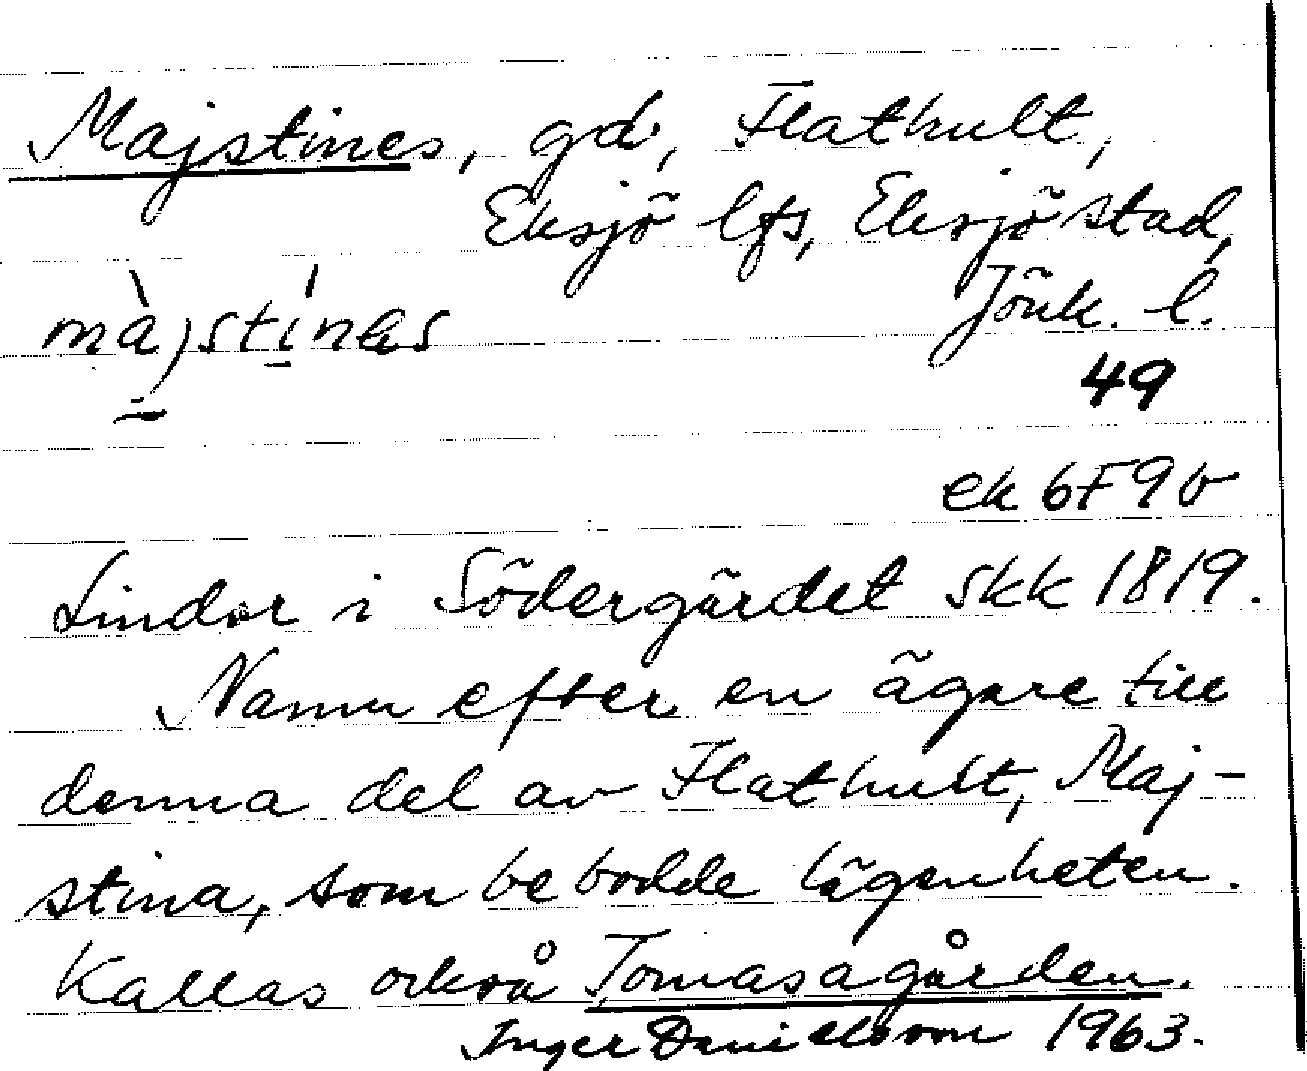 Majstines, gd, Flathult,
Eksjö lfs, Eksjö stad,
Jönk. l.
màjstínas
49
ek 6F9v
Lindor i Södergärdet skk 1819.
Namn efter en ägare till
denna del av Flathult, Maj-
stina, som bebodde lägenheten.
Kallas också Tomasagården.
Inger Danielsson 1963.